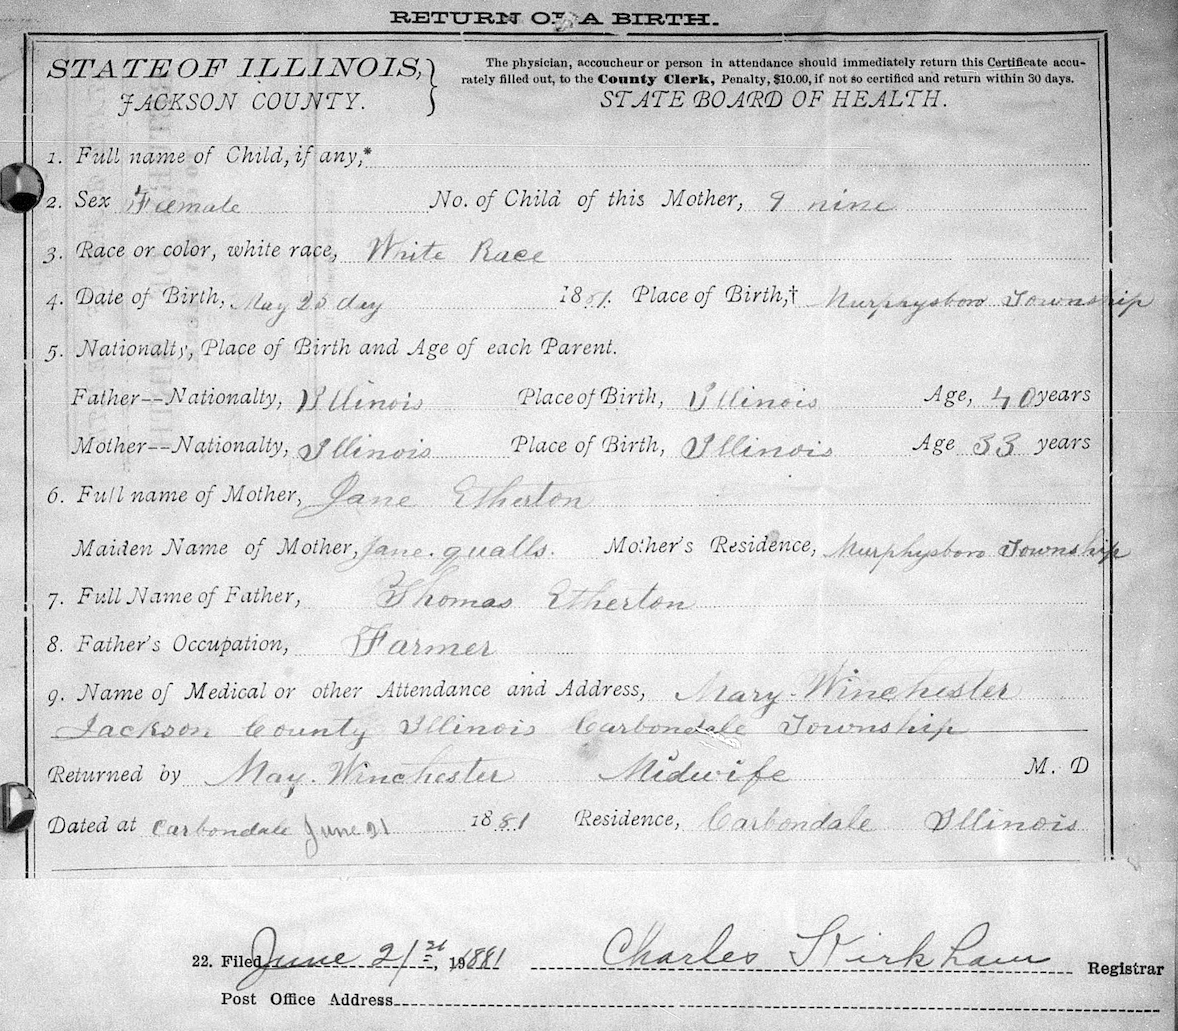 RETURN OF A BIRTH.
STATE OF ILLINOIS, } The physician, accoucheur or person in attendance should immediately return this Certificate accu-
rately filled out, to the County Clerk, Penalty, $10.00, if not so certified and return within 30 days.
JACKSON COUNTY. STATE BOARD OF HEALTH.
1. Full name of Child, if any,*
2. Sex Female No. of Child of this Mother, 9 nine
3. Race or color, white race, White Race
4. Date of Birth, May 25 day 1881. Place of Birth,† Murphysboro Township
5. Nationalty, Place of Birth and Age of each Parent.
Father--Nationalty, Illinois Place of Birth, Illinois Age, 40 years
Mother--Nationalty, Illinois Place of Birth, Illinois Age 33 years
6. Full name of Mother, Jane Etherton
Maiden Name of Mother, Jane. qualls. Mother's Residence, Murphysboro Township
7. Full Name of Father, Thomas Etherton
8. Father's Occupation, Farmer
9. Name of Medical or other Attendance and Address, Mary. Winchester
Jackson County Illinois Carbondale Township
Returned by May. Winchester Midwife M. D
Dated at Carbondale June 21 1881 Residence, Carbondale Illinois
22. Filed June 21st, 1881 Charles Kirkham Registrar
Post Office Address